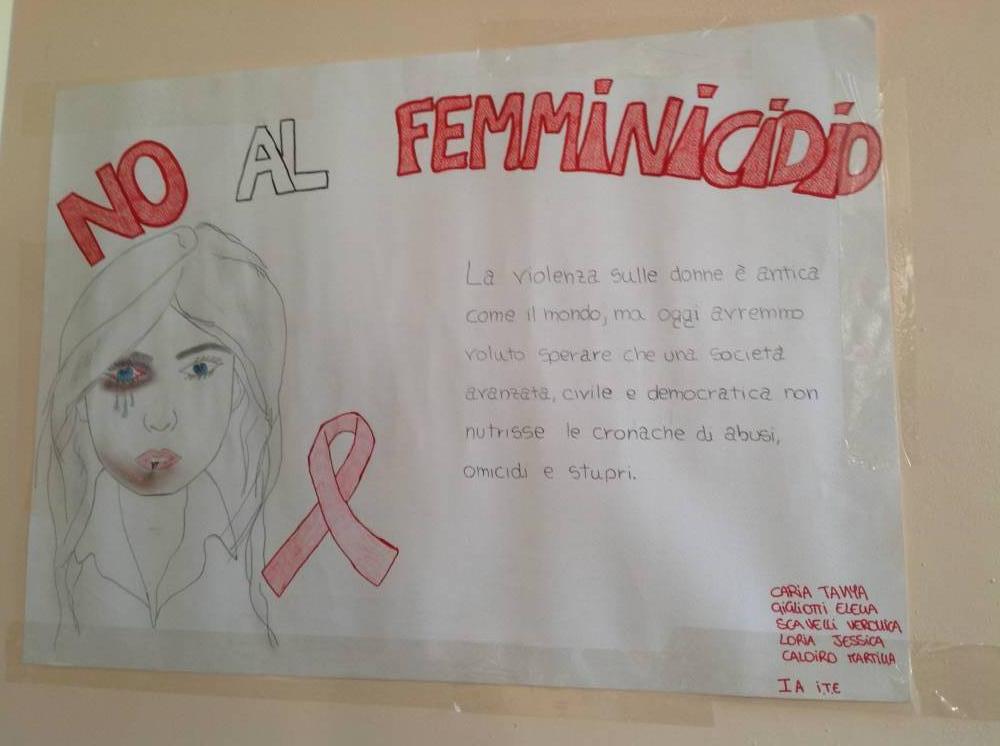 NO AL FEMMINICIDIO
La violenza sulle donne è antica
come il mondo, ma oggi avremmo
voluto sperare che una società
avanzata, civile e democratica non
nutrisse le cronache di abusi,
omicidi e stupri.
CARIA TANYA
GIGLIOTTI ELENA
SCAVELLI VERONICA
LORIA JESSICA
CALOIRO MARTINA
IA ITE